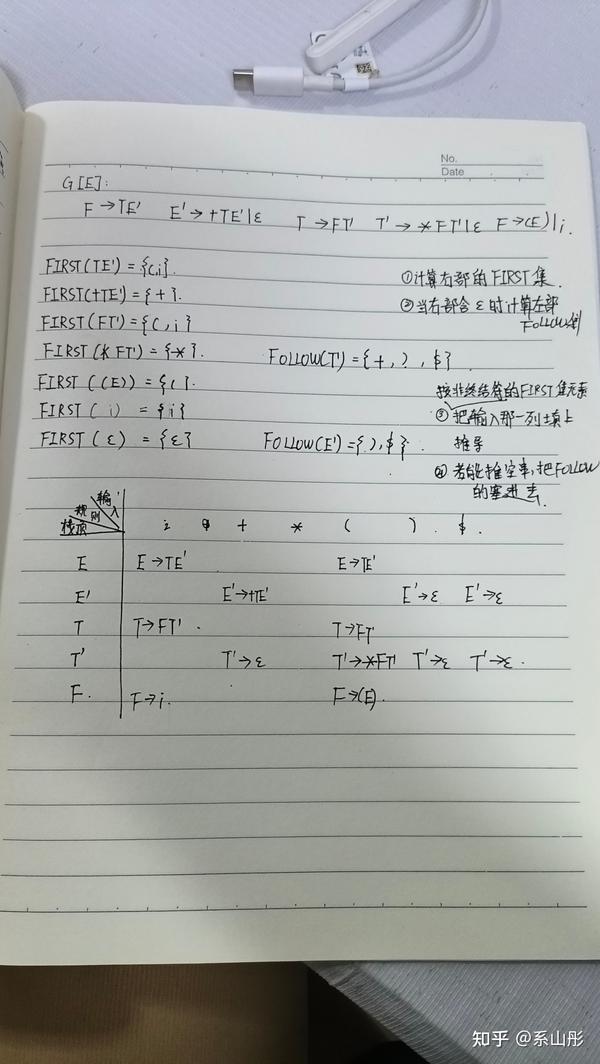 No.
Date
G[E]:
F→TE' E'→+TE'|ε T→FT' T'→*FT'|ε F→(E)|i.
FIRST(TE')={(,i}.
FIRST(+TE')={+}
FIRST(FT')={(,i}
FIRST(*FT')={*}. FOLLOW(T')={+,),$}
FIRST((E))={(}.
FIRST(i)={i}
FIRST(ε)={ε} FOLLOW(E')={),$}.
①计算右部的FIRST集.
②当右部含ε时计算左部
FOLLOW集
按非终结符的FIRST集元素
③把输入那一列填上
推导
④若能推空串,把FOLLOW
的塞进去.
输入
规则
栈顶
i + * ( ) $.
E E→TE' E→TE'
E' E'→+TE' E'→ε E'→ε
T T→FT'. T→FT'
T' T'→ε T'→*FT' T'→ε T'→ε.
F. F→i. F→(E).
知乎 @系山彤